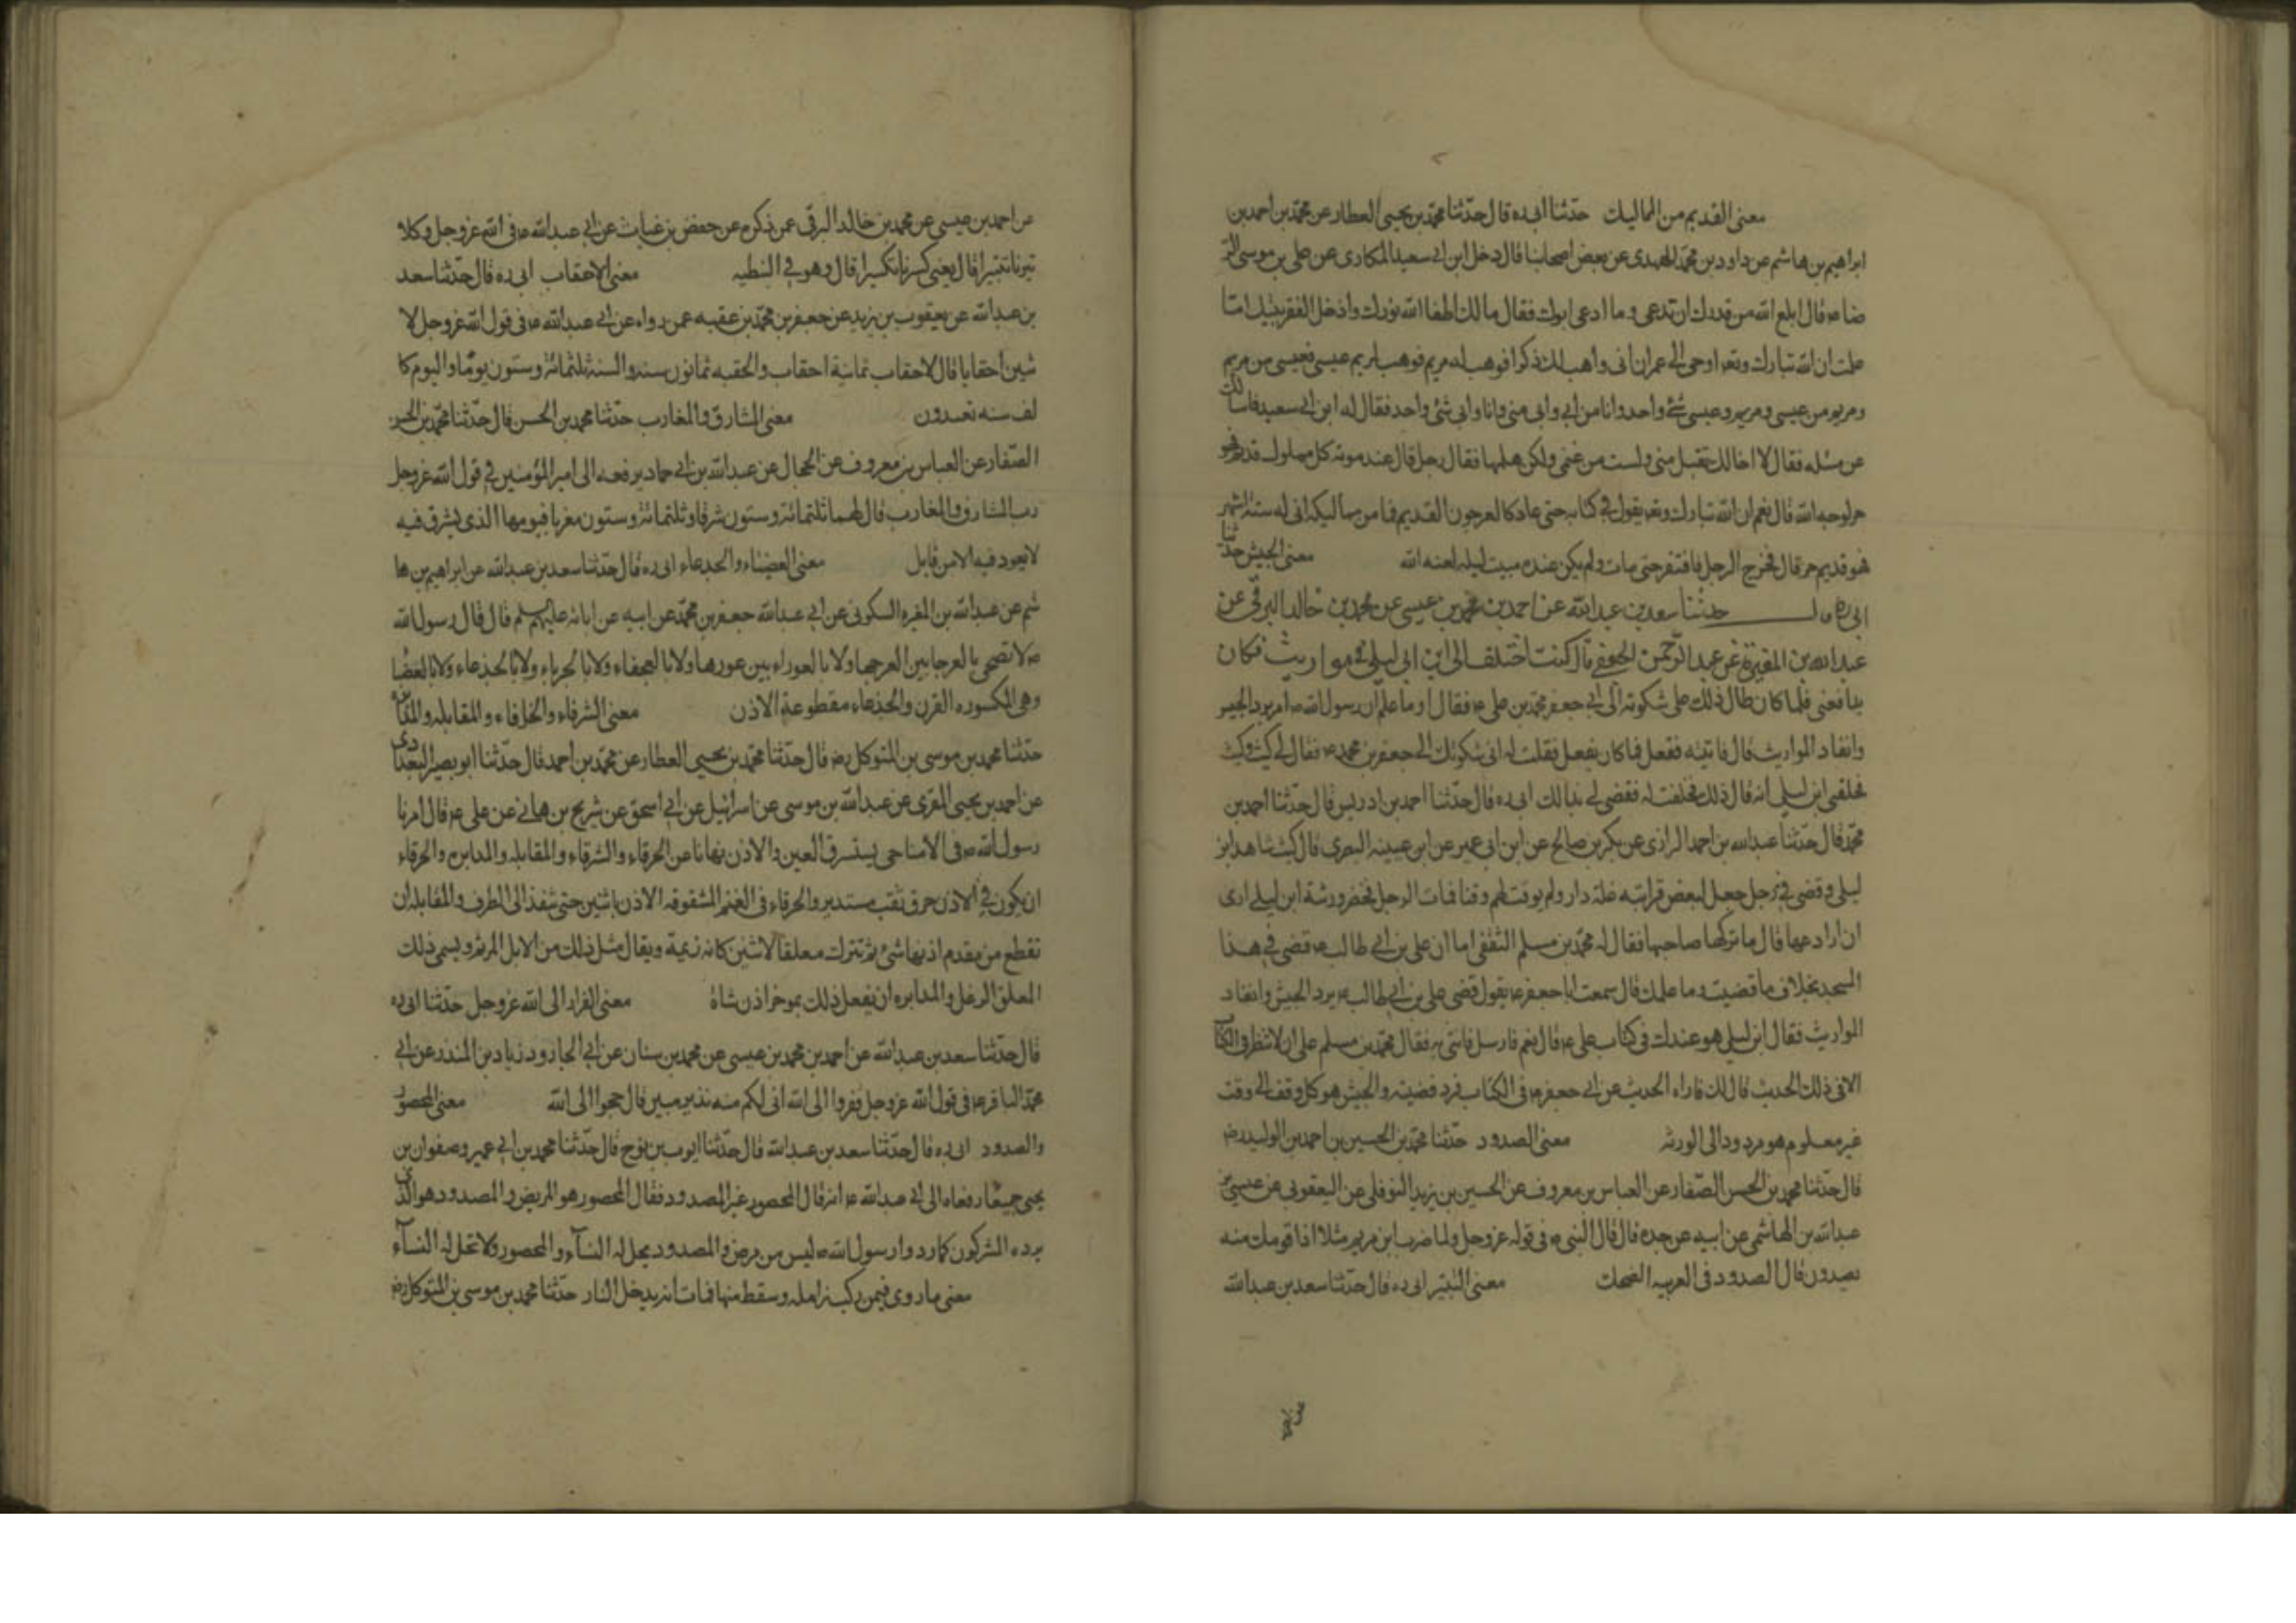 معنى القديم من المماليك حدثنا ابى ره قال حدثنا محمد بن يحيى العطار عن محمد بن احمد بن
ابراهيم بن هاشم عن داود بن محمد النهدى عن بعض اصحابنا قال دخل ابن ابى سعيد المكارى على بن موسى الر
ضا ع قال ابلغ الله من قدرك ان تدعى وما ادعى ابوك فقال مالك اطفا الله نورك وادخل الفقر بيتك اما
علمت ان الله تبارك وتع اوحى الى عمران انى واهب لك ذكرا فوهب له مريم فوهب لمريم عيسى فعيسى من مريم
ومريم من عيسى ومريم وعيسى شئ واحد وانا من ابى وابى منى وانا وابى شئ واحد فقال له ابن ابى سعيد فاسالك
عن مسئله فقال لا اخالك تقبل منى ولست من غنمى ولكن هلمها فقال رجل قال عند موته كل مملول قديم فهو
حر لوجه الله قال نعم ان الله تبارك وتع يقول فى كتابه حتى عاد كالعرجون القديم فما من مماليكه اتى له ستة اشهر
فهو قديم حر قال فخرج الرجل فافتقر حتى مات ولم يكن عنده مبيت ليله لعنه الله معنى الجيش حدثنا
ابى ره قال حدثنا سعد بن عبد الله عن احمد بن محمد بن عيسى عن محمد بن خالد البرقى عن
عبد الله بن المغيرة عن عبد الرحمن الجعفى قال كنت اختلف الى ابن ابى ليلى فى مواريث فكان
يدافعنى فلما كان طال ذلك على شكوته الى ابى جعفر محمد بن على ع فقال او ما علم ان رسول الله ص امر برد الجيس
وانفاد المواريث قال فاتيته ففعل فما كان يفعل فقلت له انى شكوتك الى جعفر بن محمد ع فقال لى كيت وكيت
فحلفنى ابن ليلى انه قال ذلك فحلفت له فقضى لى بذالك ابى ره قال حدثنا احمد بن ادريس قال حدثنا احمد بن
محمد قال حدثنا عبد الله بن احمد الرازى عن بكر بن صالح عن ابن ابى عمير عن ابن عيينه البصرى قال كنت شاهد ابن
ليلى وقضى فى رجل جعل لبعض قرابته غلة دار ولم يوقت لهم وقتا فمات الرجل فحضر ورثة ابن ليلى ارى
ان ادعها قال ما تركها صاحبها فقال له محمد بن مسلم الثقفى اما ان على بن ابى طالب ع قضى فى هذا
المسجد بخلاف ما قضيت وما علمك قال سمعت ابا جعفر ع يقول قضى على بن ابى طالب ع برد الجيش وانفاد
المواريث فقال ابن ليلى هو عندك فى كتاب على ع قال نعم فارسل فاتنى به فقال محمد بن مسلم على ان لا تنظر فى الكتاب
الا فى ذلك الحديث قال لك فاراه الحديث عن ابى جعفر ع فى الكتاب فرد قضيته والجيش هو كل وقف الى وقت
غير معلوم هو مردود الى الورثه معنى الصدود حدثنا محمد بن الحسين بن احمد بن الوليد رض
قال حدثنا محمد بن الحسن الصفار عن العباس بن معروف عن الحسين بن يزيد النوفلى عن اليعقوبى عن عيسى بن
عبد الله بن الهاشمى عن ابيه عن جده قال قال النبى ص فى قوله عز وجل ولما ضرب ابن مريم مثلا اذا قومك منه
يصدون قال الصدود فى العربيه الضحك معنى التتبير ابى ره قال حدثنا سعد بن عبد الله
عن احمد بن عيسى عن محمد بن خالد البرقى عمن ذكره عن جعفر بن غياث عن ابى عبد الله ع فى الله عز وجل وكلا
تبرنا تتبيرا قال يعنى كسرنا تكسيرا قال وهو فى النبطيه معنى الاحقاب ابى ره قال حدثنا سعد
بن عبد الله عن يعقوب بن يزيد عن جعفر بن محمد بن عقبه عمن رواه عن ابى عبد الله ع فى قول الله عز وجل لا
بثين احقابا قال الاحقاب ثمانية احقاب والحقبه ثمانون سنه والسنة ثلثمائة وستون يوما واليوم كا
لف سنه تعدون معنى المشارق والمغارب حدثنا محمد بن الحسن قال حدثنا محمد بن الحسن
الصفار عن العباس بن معروف عن الحجال عن عبد الله بن ابى حماد يرفعه الى امير المؤمنين فى قول الله عز وجل
رب المشارق والمغارب قال لهما ثلثمائة وستون شرقا وثلثمائة وستون مغربا فيومها الذى يشرق فيه
لا يعود فيه الا من قابل معنى العضباء والجدعاء ابى ره قال حدثنا سعد بن عبد الله عن ابراهيم بن ها
شم عن عبد الله بن المغيره السكونى عن ابى عبد الله جعفر بن محمد عن ابيه عن ابائه عليهم السلم قال قال رسول الله
ص لا تضحى بالعرجا بين العرجها ولا بالعوراء بين عورها ولا بالعجفاء ولا بالجرباء ولا بالجذعاء ولا بالعضبا
وهى المكسوره القرن والجذعاء مقطوعة الاذن معنى الشرقاء والخرقاء والمقابله والمدابره
حدثنا محمد بن موسى بن المتوكل رض قال حدثنا محمد بن يحيى العطار عن محمد بن احمد قال حدثنا ابو بصير البغدادى
عن احمد بن يحيى المقرى عن عبد الله بن موسى عن اسرائيل عن ابى اسحق عن شريح بن هانى عن على ع قال امرنا
رسول الله ص فى الاضاحى يستشرف العين والاذن نهانا عن الخرقاء والشرقاء والمقابله والمدابره والخرقاء
ان يكون فى الاذن خرق ثقب مستدير والخرقاء فى الغنم المشقوقه الاذن باثنين حتى ينفذ الى الطرف والمقابله ان
تقطع من مقدم اذنها شئ ثم تترك معلقا لا تبين كانه زنمة ويقال مثل ذلك من الابل المزنم ويسمى ذلك
المعلق الرعل والمدابره ان يفعل ذلك بموخر اذن شاة معنى الفرار الى الله عز وجل حدثنا ابى ره
قال حدثنا سعد بن عبد الله عن احمد بن محمد بن عيسى عن محمد بن سنان عن ابى الجارود زياد بن المنذر عن ابى
محمد الباقر ع فى قول الله عز وجل ففروا الى الله انى لكم منه نذير مبين قال حجوا الى الله معنى المحصور
والصدود ابى ره قال حدثنا سعد بن عبد الله قال حدثنا ايوب بن نوح قال حدثنا محمد بن ابى عمير وصفوان بن
يحيى جميعا رفعاه الى ابى عبد الله ع انه قال المحصور غير المصدود فقال المحصور هو المريض والمصدود هو الذى
يرده المشركون كما ردوا رسول الله ص ليس من مرض والمصدود يحل له النساء والمحصور ولا تحل له النساء
معنى ما روى فيمن ركب زامله وسقط منها فمات انه يدخل النار حدثنا محمد بن موسى بن المتوكل رض